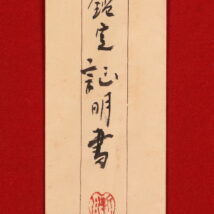 鑑定証明書